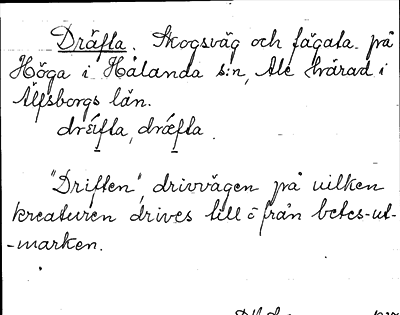 Dräfta. Skogsväg och fägata på
Höga i Hålanda s:n, Ale härad i
Älfsborgs län.
dreifta, dræfta.
"Driften", drivvägen på vilken
kreaturen drives till o från betes-ut-
-marken.